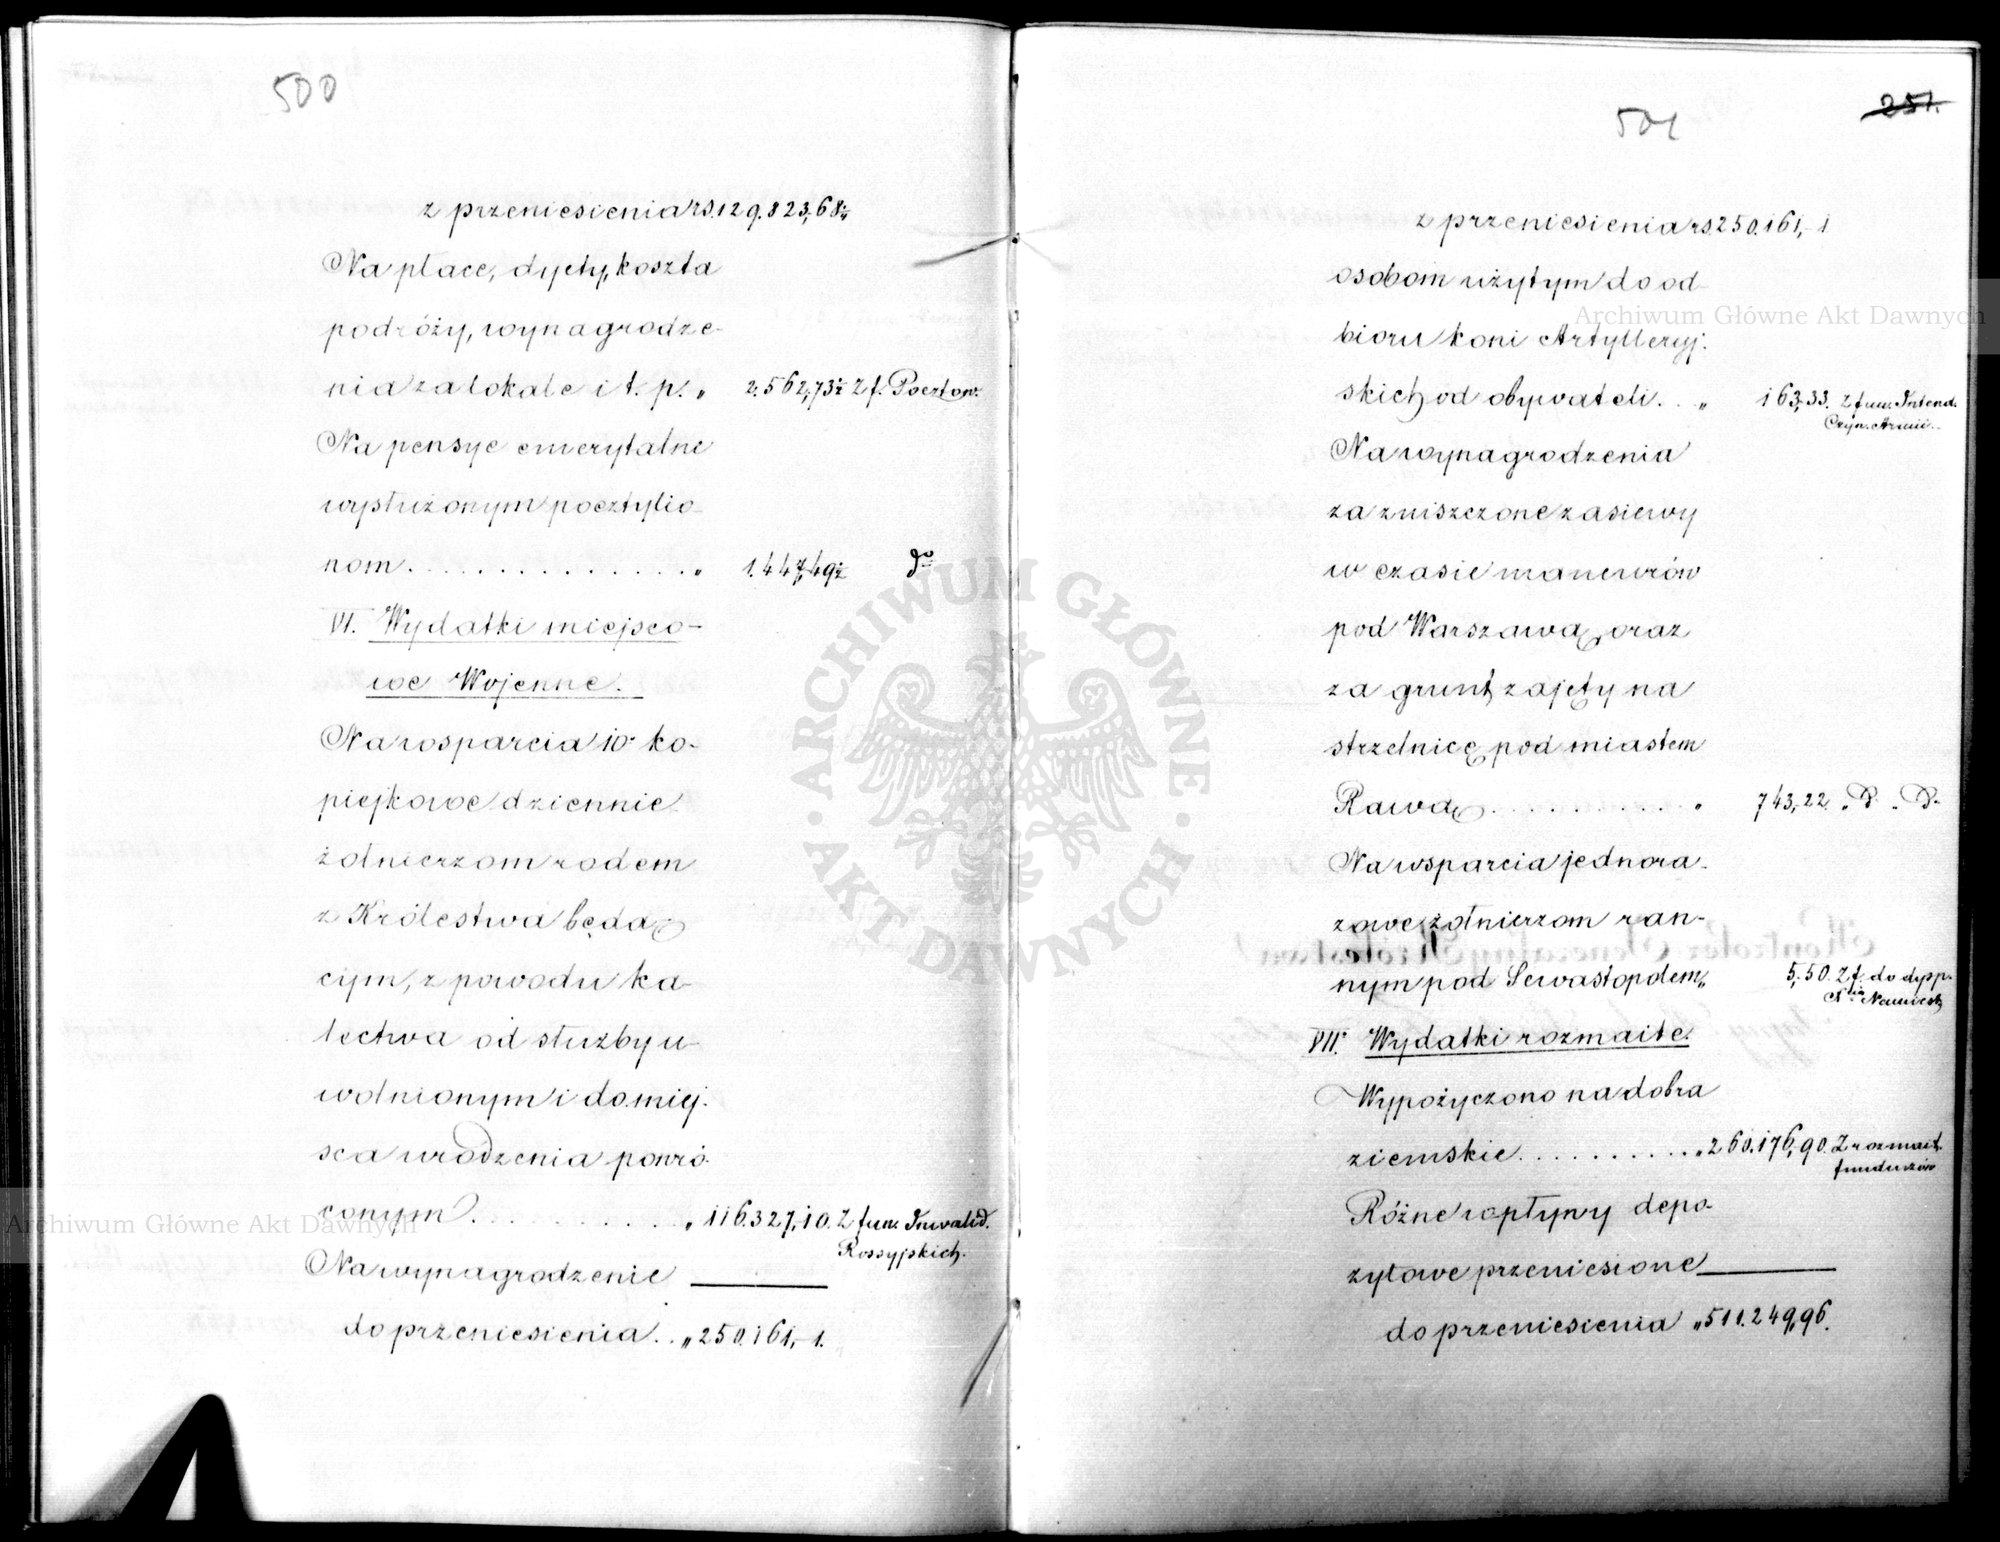 500
z przeniesienia rs. 129.823,68¼
Na płace, dyety, koszta
podróży, wynagrodze-
nia za lokale i t. p. „ 2.562,73½ Z f. Pocztow.
Na pensye emerytalne
wysłużonym pocztylio-
nom . . . . . . . . . . . . . „ 1.447,49½ do
VI. Wydatki miejsco-
we Wojenne.
Na wsparcia 10. ko-
piejkowe dziennie
żołnierzom rodem
z Królestwa będą-
cym, z powodu ka-
lectwa od służby u-
wolnionym i do miej-
sca urodzenia powró-
conym . . . . . . . . . „ 116.327,10. Z fun. Inwalid.
Rossyjskich.
Na wynagrodzenie
do przeniesienia . . „ 250.161,-1.
251.
501
z przeniesienia rs. 250.161,-1
osobom użytym do od-
bioru koni Artylleryj-
skich od obywateli . . „ 163,33. Z fun. Intend.
Czyn. Armii.
Na wynagrodzenia
za zniszczone zasiewy
w czasie manewrów
pod Warszawą, oraz
za grunt zajęty na
strzelnicę pod miastem
Rawą . . . . . . . . . . „ 743,22. „ D. „ D.
Na wsparcia jednora-
zowe żołnierzom ran-
nym pod Sewastopolem „ 5,50. Z f. do dysp.
Namiest.
VII. Wydatki rozmaite.
Wypożyczono na dobra
ziemskie . . . . . . . . . . „ 260.176,90. Z rozmait.
funduszów
Różne wpływy depo-
zytowe przeniesione
do przeniesienia „ 511.249,96.
Archiwum Główne Akt Dawnych
Archiwum Główne Akt Dawnych
ARCHIWUM GŁÓWNE
AKT DAWNYCH